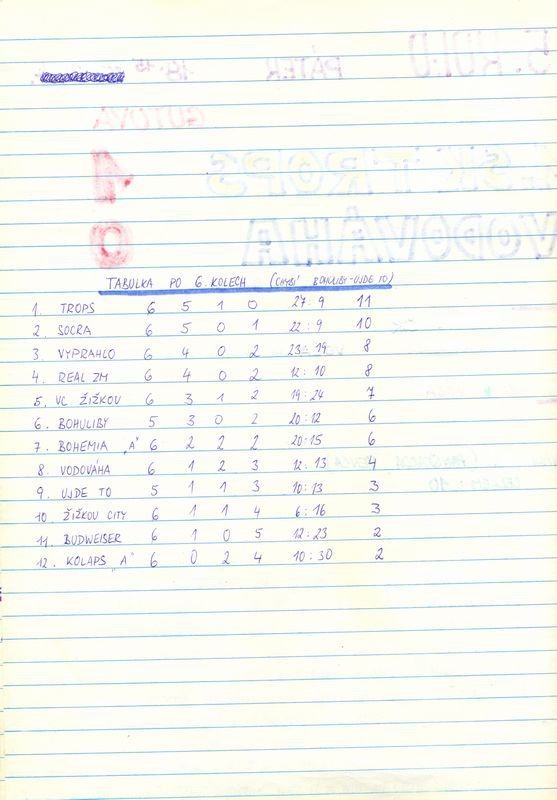 TABULKA PO 6. KOLECH (CHYBÍ BOHULIBY-UJDE TO)
1. TROPS 6 5 1 0 27:9 11
2. SOCRA 6 5 0 1 22:9 10
3. VYPRAHLO 6 4 0 2 23:19 8
4. REAL ZM 6 4 0 2 12:10 8
5. VC ŽIŽKOV 6 3 1 2 19:24 7
6. BOHULIBY 5 3 0 2 20:12 6
7. BOHEMIA „A" 6 2 2 2 20:15 6
8. VODOVÁHA 6 1 2 3 12:13 4
9. UJDE TO 5 1 1 3 10:13 3
10. ŽIŽKOV CITY 6 1 1 4 6:16 3
11. BUDWEISER 6 1 0 5 12:23 2
12. KOLAPS „A" 6 0 2 4 10:30 2